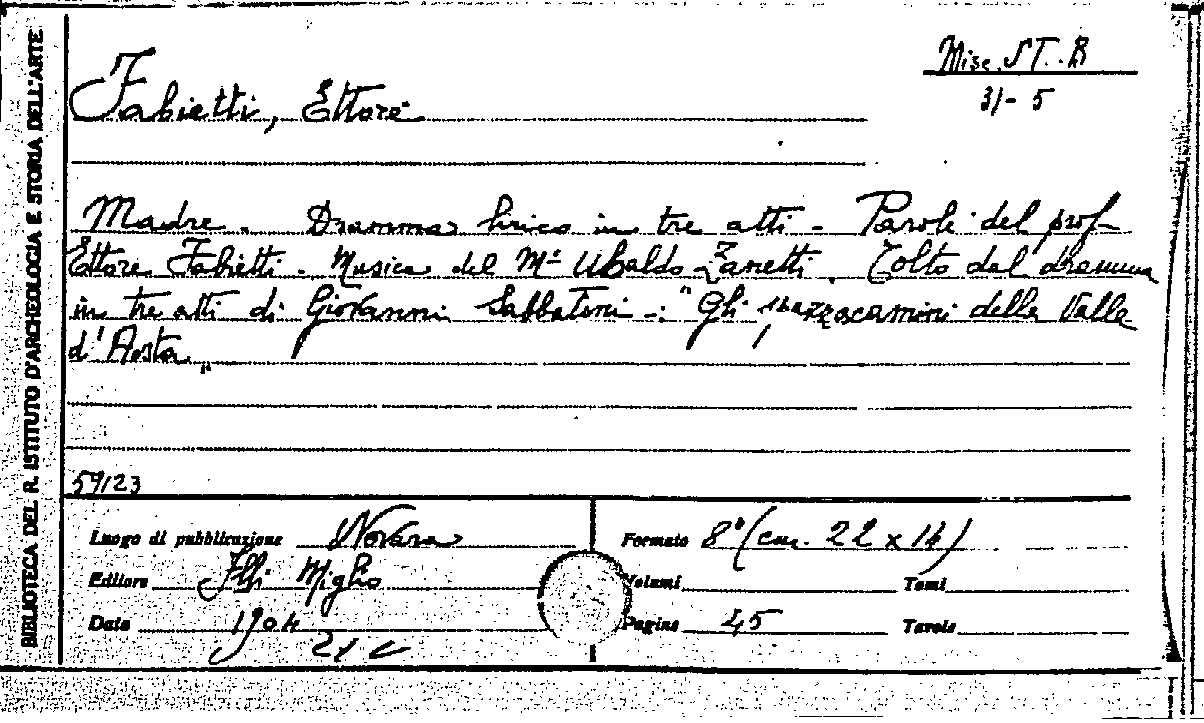 BIBLIOTECA DEL R. ISTITUTO D'ARCHEOLOGIA E STORIA DELL'ARTE
Misc. ST. B
31-5
Fabietti, Ettore
Madre. Dramma lirico in tre atti - Parole del prof
Ettore Fabietti. Musica del Mº Ubaldo Zanetti. Tolto dal dramma
in tre atti di Giovanni Sabbatini -: "Gli spazzacamini della Valle
d'Aosta"
59123
Luogo di pubblicazione Novara
Editore Flli Miglio
Data 1904
Formato 8º (cm. 22 x 14)
Volumi Tomi
Pagine 45 Tavole